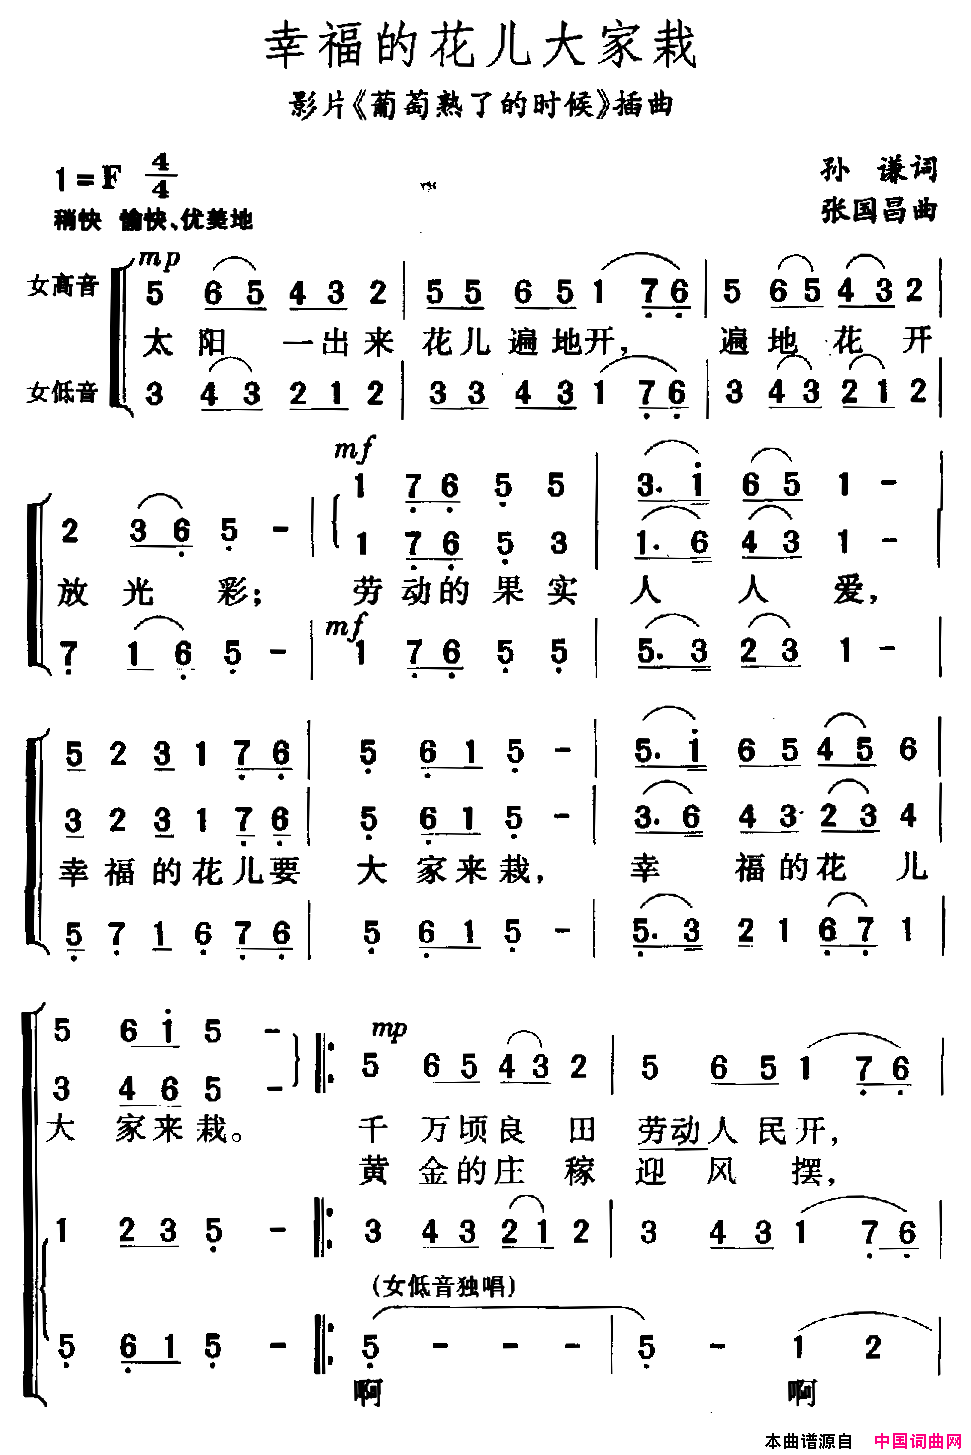 幸福的花儿大家栽
影片《葡萄熟了的时候》插曲
1=F 4/4
孙 谦词
稍快 愉快、优美地
张国昌曲
mp
女高音 5 65 43 2 | 55 65 1 76 | 5 65 43 2 |
太阳 一出来 花儿遍地开， 遍地花开
女低音 3 43 21 2 | 33 43 1 76 | 3 43 21 2 |
mf
1 76 5 5 | 3. 1 65 1 - |
2 36 5 - | 1 76 5 3 | 1. 6 43 1 - |
放光彩； 劳动的果实 人人爱，
mf
7 16 5 - | 1 76 5 5 | 5. 3 23 1 - |
5 2 3 1 76 | 5 61 5 - | 5. 1 65 45 6 |
3 2 3 1 7 6 | 5 61 5 - | 3. 6 43 23 4 |
幸福的花儿要 大家来栽， 幸福的花儿
5 7 1 6 76 | 5 61 5 - | 5. 3 2 1 67 1 |
mp
5 61 5 - 5 65 43 2 | 5 65 1 76 |
3 46 5 -
大家来栽。 千万顷良田 劳动人民开，
黄金的庄稼 迎风摆，
1 23 5 - 3 43 21 2 | 3 43 1 76 |
（女低音独唱）
5 61 5 - 5 - - - | 5 - 1 2 |
啊 啊
本曲谱源自 中国词曲网